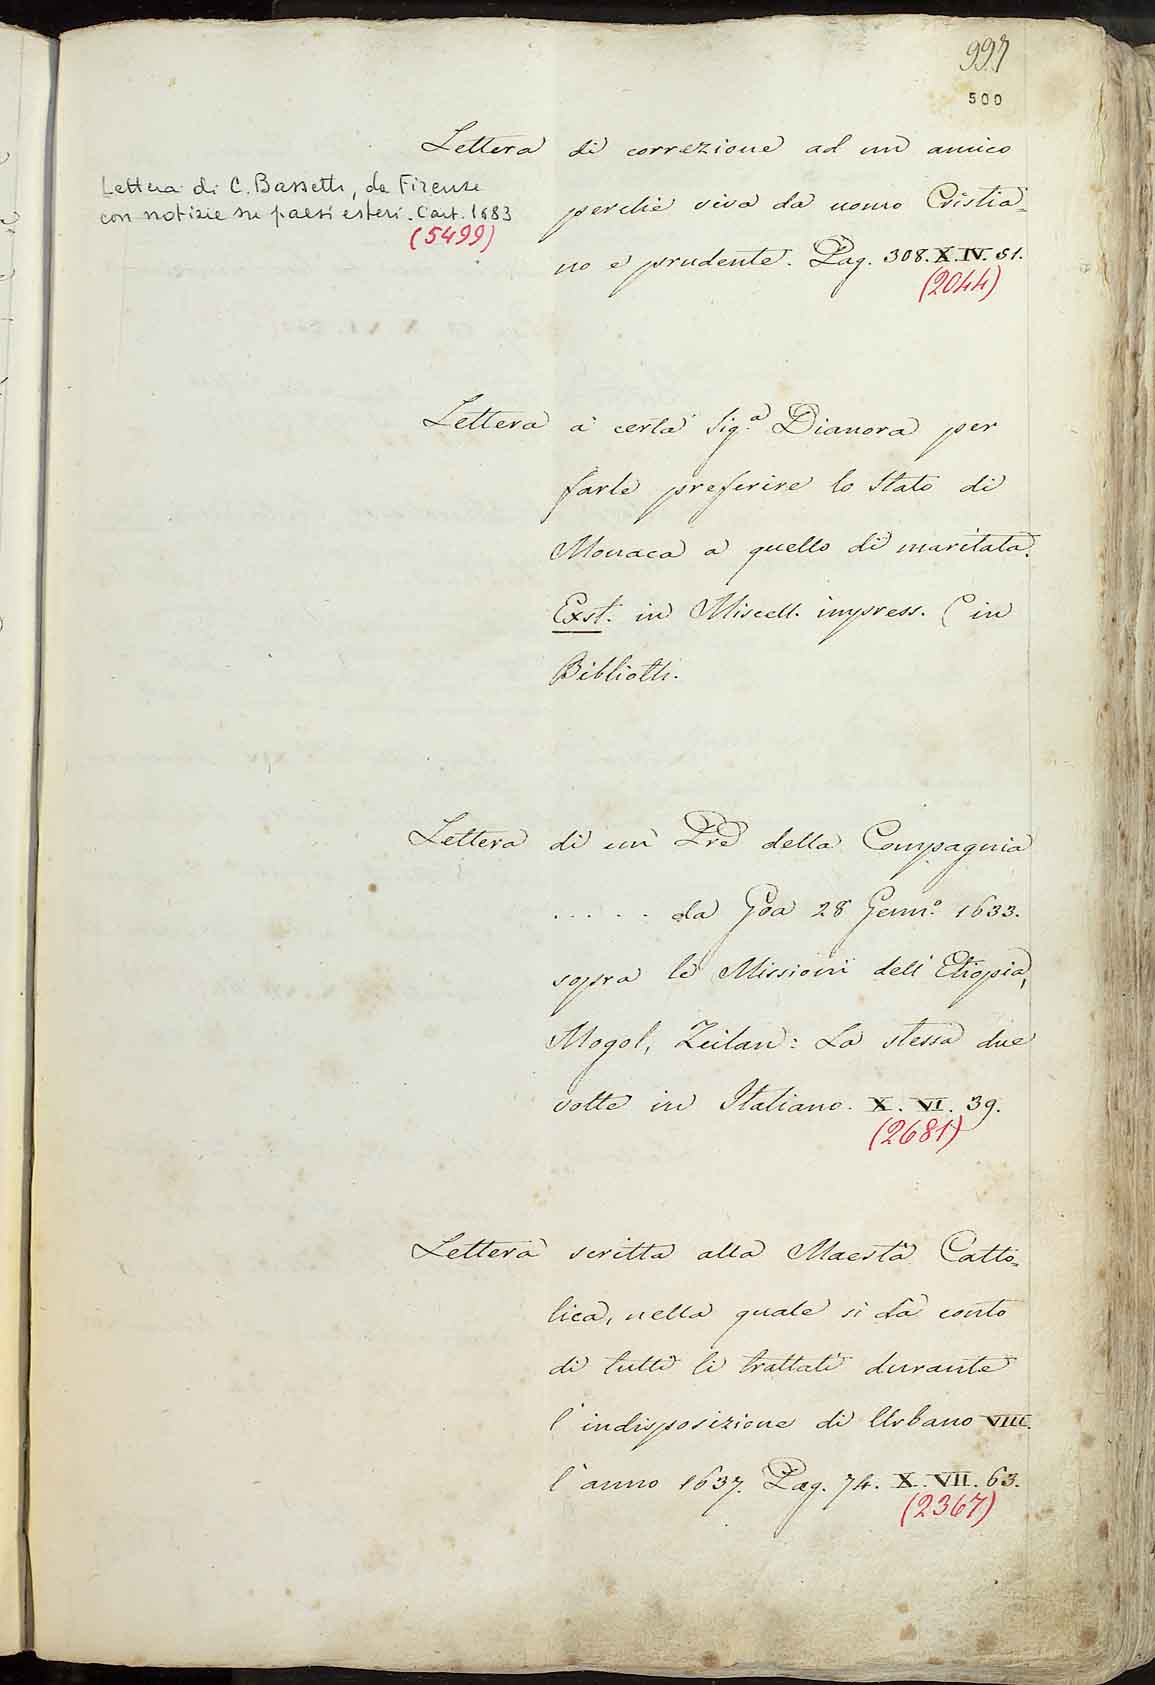 997
500
Lettera di correzione ad un amico
Lettera di C. Bassetti, da Firenze
con notizie su paesi esteri. Cart. 1683
(5499)
perchè viva da uomo Cristia=
no e prudente. Pag. 308. X. IV. 51.
(2044)
Lettera a certa Sig.ª Dianora per
farle preferire lo Stato di
Monaca a quello di maritata.
Exst. in Miscell. impress. C in
Biblioth.
Lettera di un Pre della Compagnia
..... da Goa 28 Genn.º 1633.
sopra le Missioni dell' Etiopia,
Mogol, Zeilan: La stessa due
volte in Italiano. X. VI. 39.
(2681)
Lettera scritta alla Maestà Catto=
lica, nella quale si dà conto
di tutti li trattati durante
l'indisposizione di Urbano VIII.
l'anno 1637. Pag. 74. X. VII. 63.
(2367)